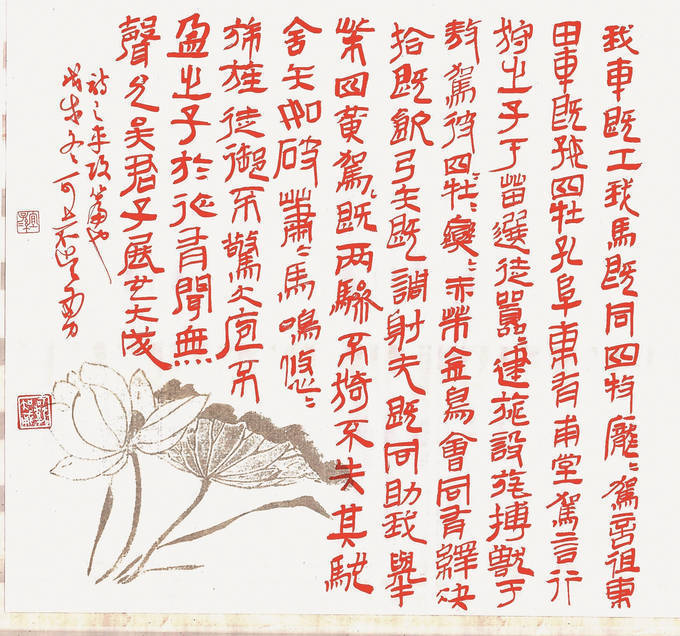 我車既工我馬既同四牡龐〻駕言徂東
田車既好四牡孔阜東有甫草駕言行
狩之子于苗選徒囂〻建旐設旄搏獸于
敖駕彼四牡〻奕〻赤芾金舄會同有繹決
拾既佽弓矢既調射夫既同助我舉
柴四黃駕〻既兩驂不猗不失其馳
舍矢如破蕭〻馬鳴悠〻
旆旌徒御不驚大庖不
盈之子於征有聞無
聲允矣君子展也大成
詩之車攻篇也